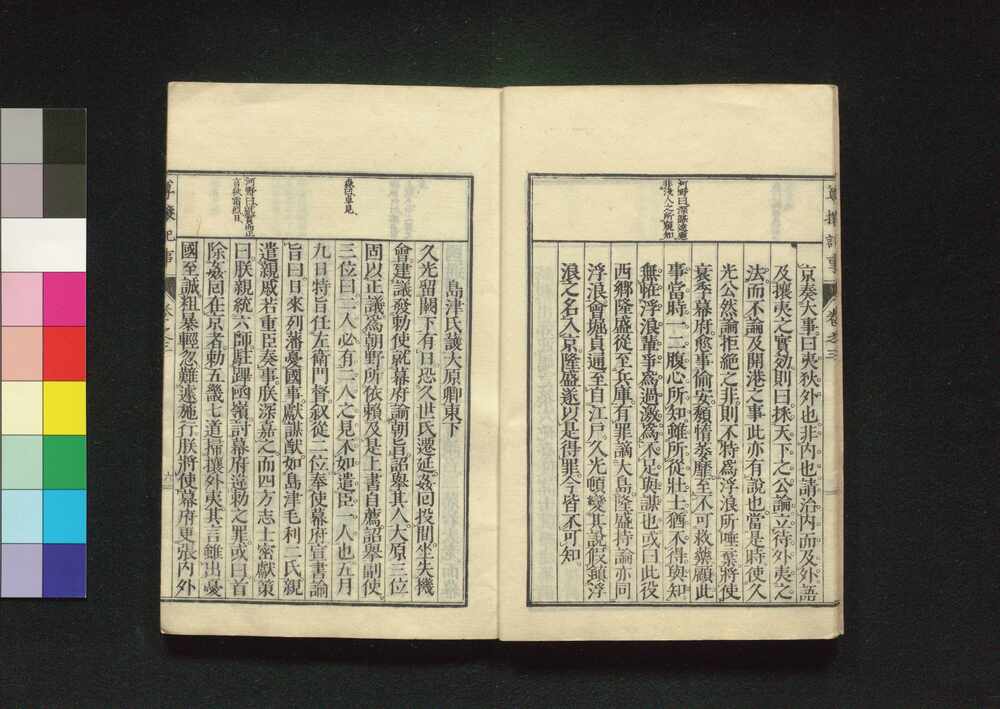 尊攘記事
卷之三
河野曰深謀遠慮
非淺人之所窺知
京奏大事曰夷狄外也非内也請治内而及外語
及攘夷之實効則曰採天下之公論立待外夷之
法而不論及開港之事此亦有説也當是時使久
光公然論拒絶之非則不特爲浮浪所唾棄將使
衰季幕府愈事偷安頽惰萎靡至不可救藥顧此
事當時一二腹心所知雖所從壯士猶不得與知
無他浮浪輩爭爲過激爲不足與謀也或曰此役
西郷隆盛從至兵庫有罪謫大島隆盛持論亦同
浮浪會堀貞通至自江戸久光頓變其説假鎭浮
浪之名入京隆盛遂以是得罪今皆不可知
島津氏護大原卿東下
久光留闕下有日恐久世氏遷延姦回投間坐失機
會建議發勅使就幕府諭朝旨詔擧其人大原三位
固以正議爲朝野所依賴及是上書自薦詔擧副使
三位曰二人必有二人之見不如遣臣一人也五月
九日特旨任左衛門督叙從二位奉使幕府宣書諭
旨曰日來列藩憂國事獻謀猷如島津毛利二氏親
遣親戚若重臣奏事朕深嘉之而四方志士密獻策
曰朕親統六師駐蹕函嶺討幕府違勅之罪或曰首
除姦回在京者勅五畿七道掃攘外夷其言雖出憂
國至誠粗暴輕忽難遽施行朕將使幕府更張内外
森曰卓見
尊攘記事
卷之三